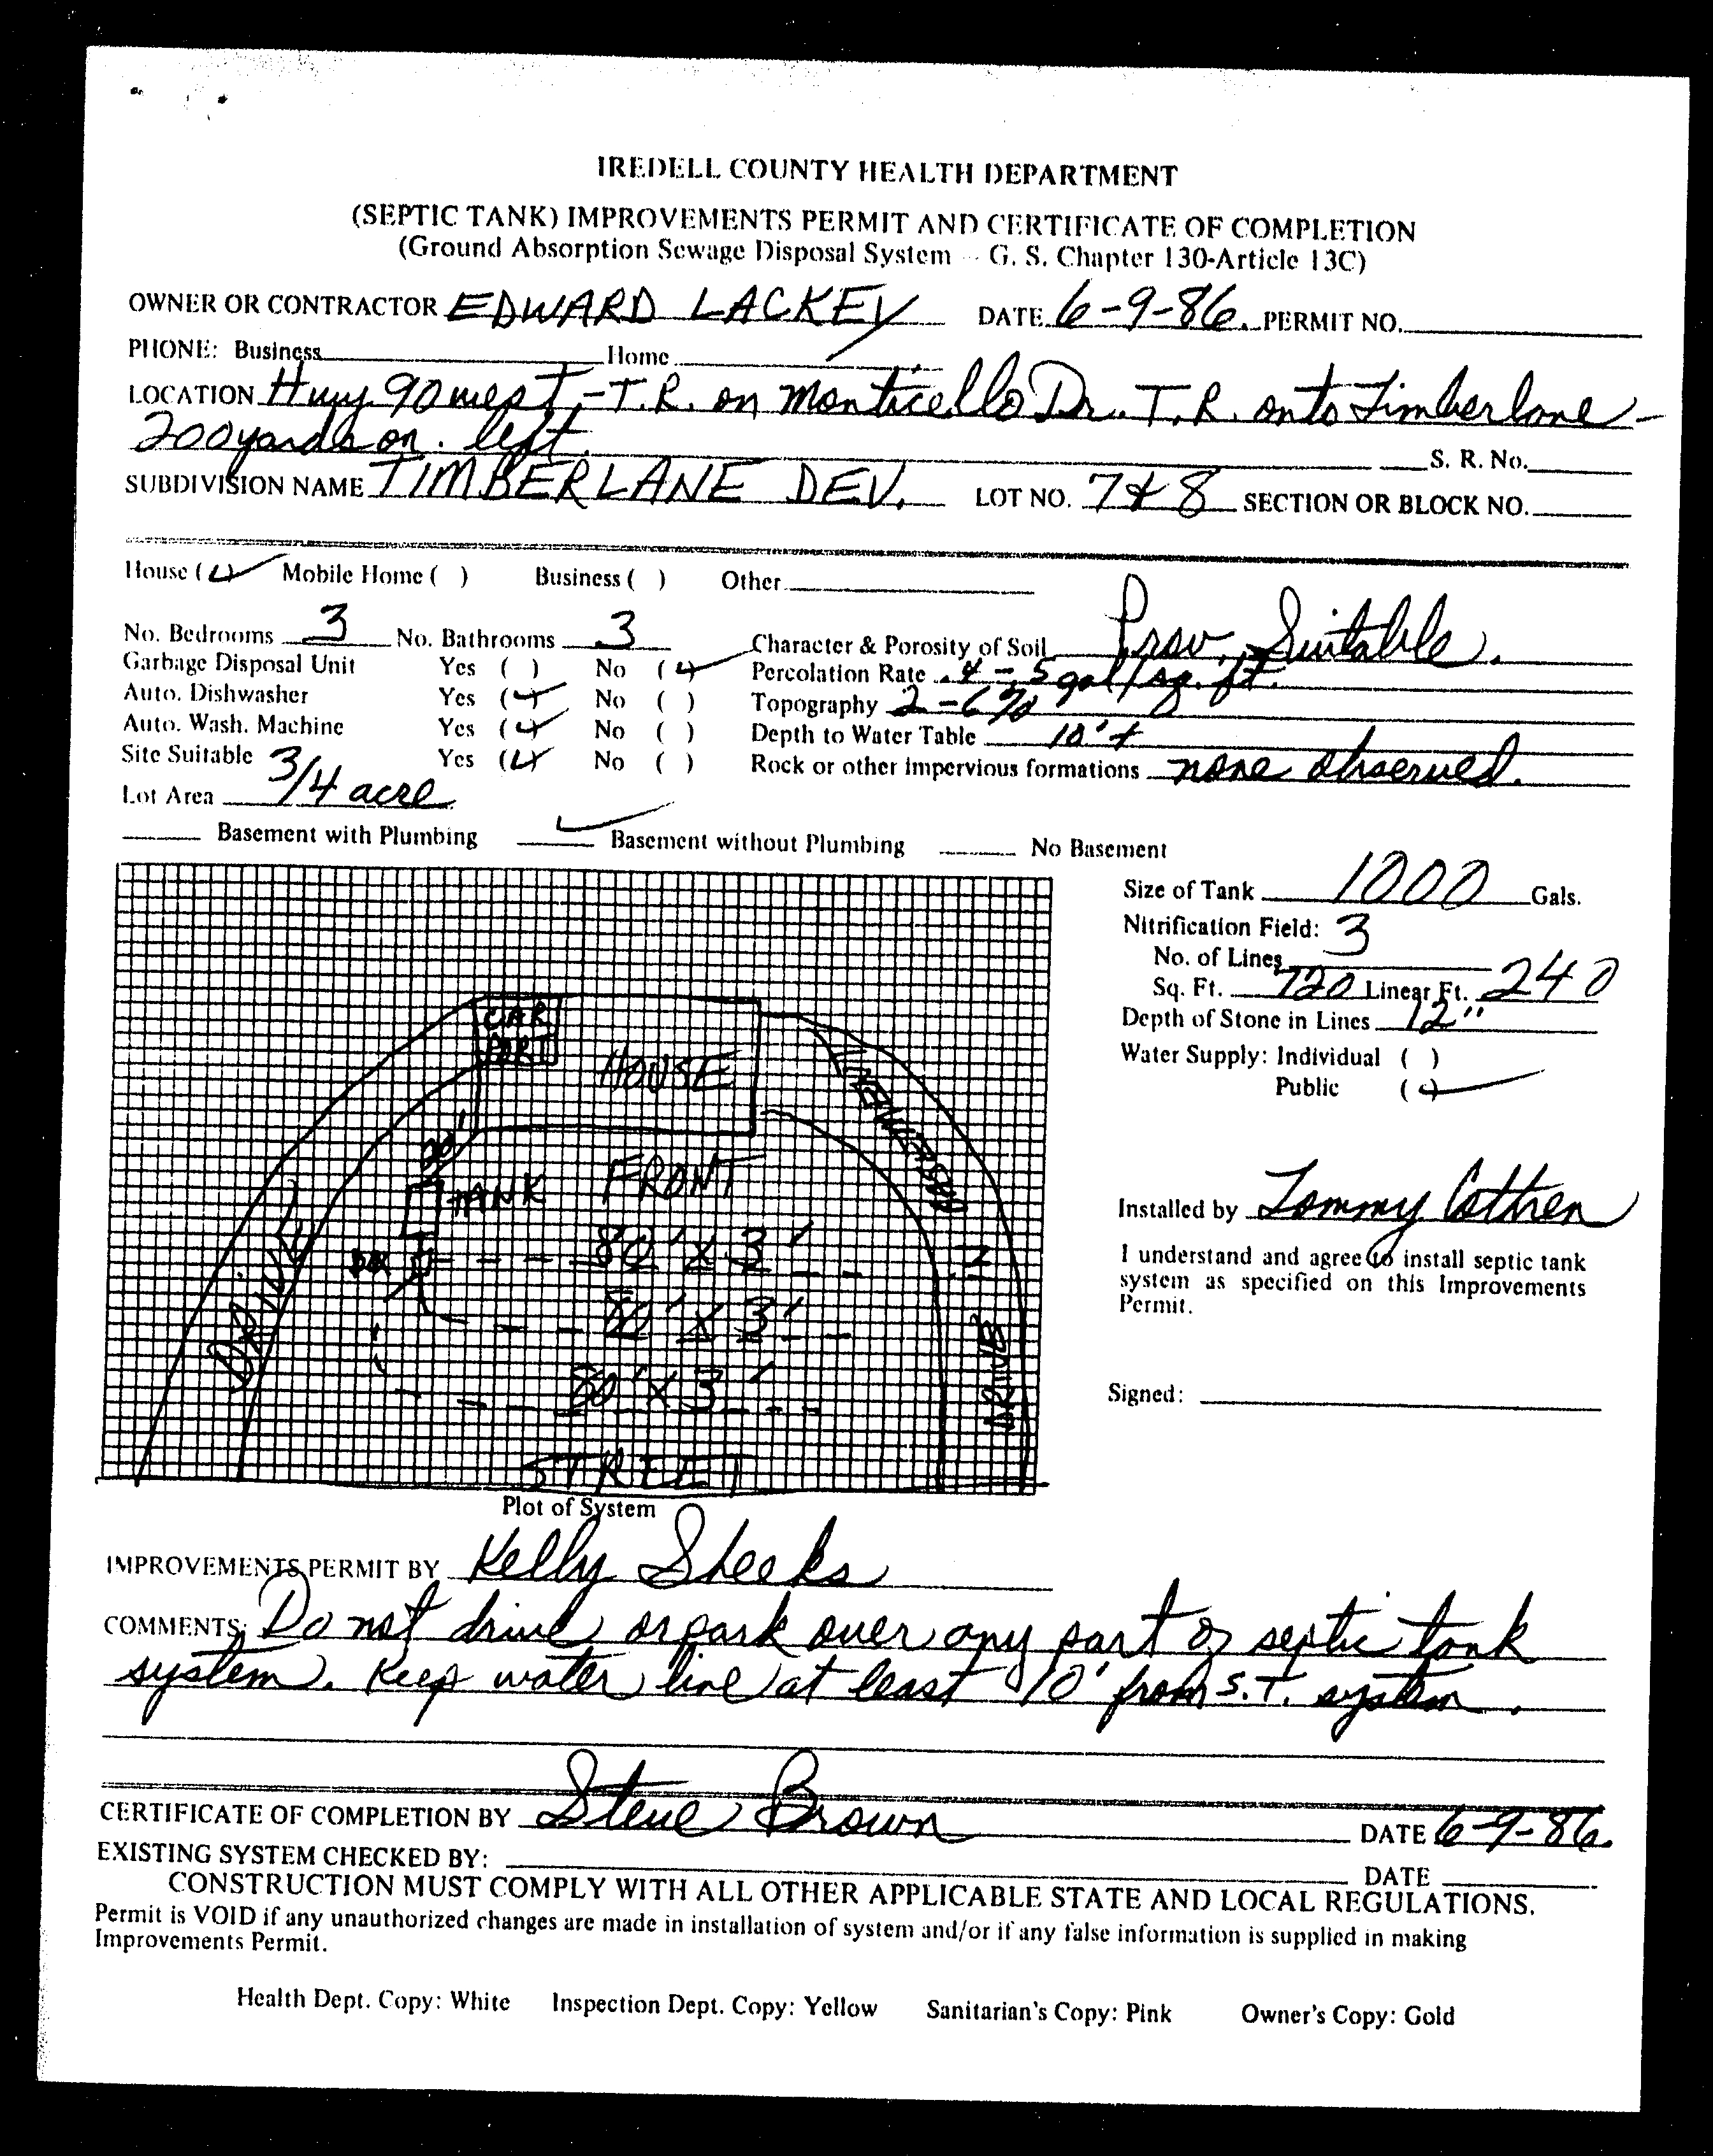 IREDELL COUNTY HEALTH DEPARTMENT
(SEPTIC TANK) IMPROVEMENTS PERMIT AND CERTIFICATE OF COMPLETION
(Ground Absorption Sewage Disposal System - G. S. Chapter 130-Article 13C)
OWNER OR CONTRACTOR EDWARD LACKEY DATE 6-9-86. PERMIT NO.
PHONE: Business Home
LOCATION Hwy 90 west - T.R. on Monticello Dr. T.R. onto Timberlane -
200 yards on left.
S. R. No.
SUBDIVISION NAME TIMBERLANE DEV. LOT NO. 7 & 8 SECTION OR BLOCK NO.
House (✓) Mobile Home ( ) Business ( ) Other
No. Bedrooms 3 No. Bathrooms 3 Character & Porosity of Soil Prov. Suitable.
Garbage Disposal Unit Yes ( ) No (✓) Percolation Rate .4 - .5 gal/sq. ft.
Auto. Dishwasher Yes (✓) No ( ) Topography 2-6%
Auto. Wash. Machine Yes (✓) No ( ) Depth to Water Table 10'+
Site Suitable Yes (✓) No ( ) Rock or other impervious formations none observed.
Lot Area 3/4 acre
Basement with Plumbing ✓ Basement without Plumbing No Basement
Size of Tank 1000 Gals.
Nitrification Field:
No. of Lines 3
Sq. Ft. 720 Linear Ft. 240
Depth of Stone in Lines 12"
Water Supply: Individual ( )
Public (✓)
CAR
PORT
HOUSE
20'
TANK FRONT
BOX
80' x 3'
80' x 3'
80' x 3'
DRIVE
DRIVE
STREET
Installed by Tommy Cothren
I understand and agree to install septic tank
system as specified on this Improvements
Permit.
Signed:
Plot of System
IMPROVEMENTS PERMIT BY Kelly Sheeks
COMMENTS: Do not drive or park over any part of septic tank
system. Keep water line at least 10' from S.T. system.
CERTIFICATE OF COMPLETION BY Steve Brown DATE 6-9-86.
EXISTING SYSTEM CHECKED BY: DATE
CONSTRUCTION MUST COMPLY WITH ALL OTHER APPLICABLE STATE AND LOCAL REGULATIONS.
Permit is VOID if any unauthorized changes are made in installation of system and/or if any false information is supplied in making
Improvements Permit.
Health Dept. Copy: White Inspection Dept. Copy: Yellow Sanitarian's Copy: Pink Owner's Copy: Gold